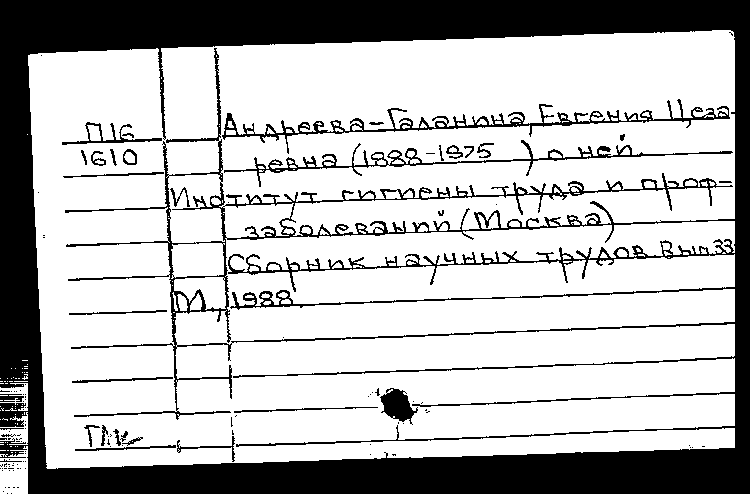 П16 Андреева-Галанина, Евгения Цеза-
1610 ревна (1888-1975 ) о ней.
Институт гигиены труда и проф-
заболеваний (Москва)
Сборник научных трудов. Вып.33
М., 1988.
ГПК